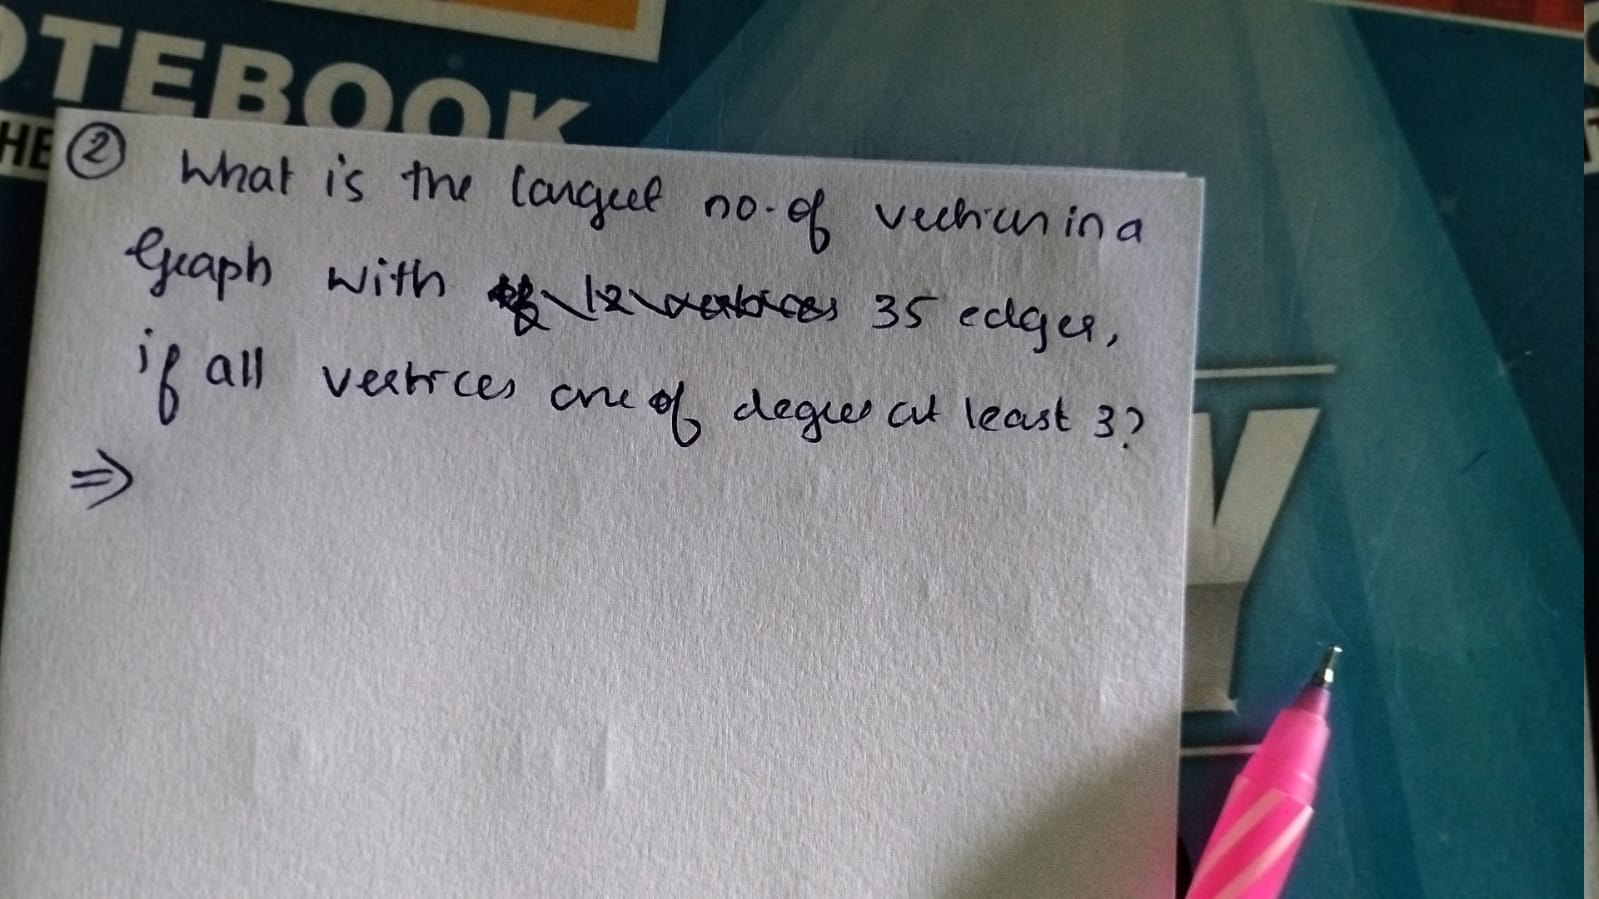 OTEBOOK
HE
② What is the largest no. of vertices in a
Graph with 12 vertices 35 edges,
if all vertices are of degree at least 3?
⇒